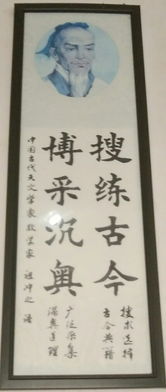 搜练古今
博采沉奥
搜求选择
古今典籍
广泛采集
深奥道理
中国古代天文学家 数学家 祖冲之 语